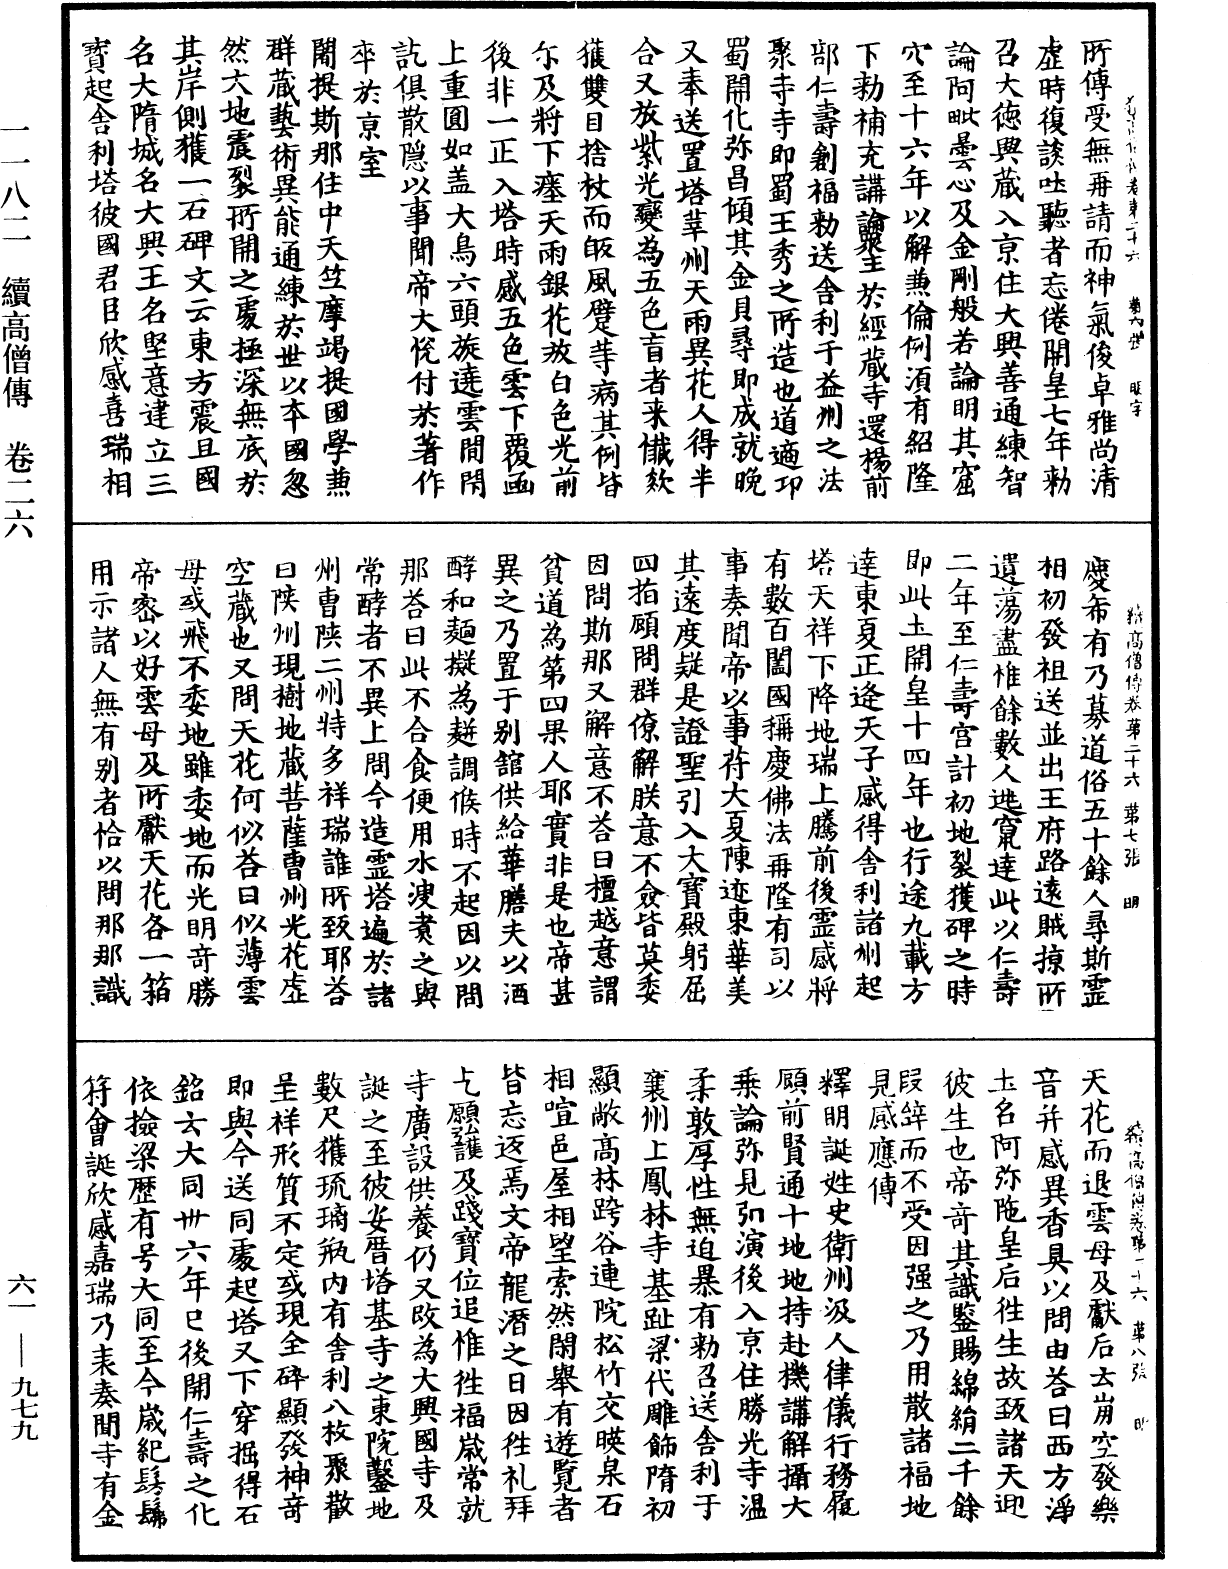 一一八二　續高僧傳　卷二六
六一—九七九
所傳受無再請而神氣俊卓雅尚清
虛時復談吐聽者忘倦開皇七年勑
召大德與藏入京住大興善通練智
論阿毗曇心及金剛般若論明其窟
穴至十六年以解兼倫例湏有紹隆
下勑補充講論衆主於經藏寺還揚前
部仁壽創福勑送舍利于益州之法
聚寺寺即蜀王秀之所造也道適邛
蜀開化弥昌傾其金貝尋即成就晚
又奉送置塔莘州天雨異花人得半
合又放紫光變為五色盲者来懺欻
獲雙目捨杖而皈風躄等病其例皆
尒及將下塔天雨銀花放白色光前
後非一正入塔時感五色雲下覆函
上重圓如盖大鳥六頭旋遶雲間閇
訖俱散隱以事聞帝大悅付於著作
卒於京室
闍提斯那住中天竺摩竭提國學兼
群藏藝術異能通練於世以本國忽
然大地震裂所開之處極深無底於
其岸側獲一石碑文云東方震旦國
名大隋城名大興王名堅意建立三
寶起舍利塔彼國君臣欣感喜瑞相
續高僧傳卷第二十六　第七張　明
慶布有乃募道俗五十餘人尋斯靈
相初發祖送並出王府路遠賊掠所
遺蕩盡惟餘數人逃竄達此以仁壽
二年至仁壽宮計初地裂獲碑之時
即此土開皇十四年也行途九載方
達東夏正逢天子感得舍利諸州起
塔天祥下降地瑞上騰前後靈感將
有數百闔國稱慶佛法再隆有司以
事奏聞帝以事符大夏陳迹東華美
其遠度疑是證聖引入大寶殿躬屈
四指顧問群僚解朕意不僉皆莫委
因問斯那又解意不荅曰檀越意謂
貧道為第四果人耶實非是也帝甚
異之乃置于别舘供給華膳夫以酒
酵和麵擬為䴵調候時不起因以問
那荅曰此不合食便用水溲煑之與
常酵者不異上問今造靈塔遍於諸
州曹陝二州特多祥瑞誰所致耶荅
曰陝州現樹地藏菩薩曹州光花虛
空藏也又問天花何似荅曰似薄雲
母或飛不委地雖委地而光明奇勝
帝密以好雲母及所獻天花各一箱
用示諸人無有别者恰以問那那識
天花而退雲母及獻后去崩空發樂
音并感異香具以問由荅曰西方淨
土名阿弥陁皇后徃生故致諸天迎
彼生也帝奇其識鑒賜綿絹二千餘
段辝而不受因强之乃用散諸福地
見感應傳
釋明誕姓史衛州汲人律儀行務履
顧前賢通十地地持赴機講解攝大
乗論弥見弘演後入京住勝光寺温
柔敦厚性無迫暴有勑召送舍利于
襄州上鳳林寺基趾梁代雕飾隋初
顯敞高林跨谷連院松竹交暎泉石
相喧邑屋相望索然閑舉有遊覽者
皆忘返焉文帝龍潛之日因徃礼拜
乞願弘護及踐寶位追惟徃福歲常就
寺廣設供養仍又改為大興國寺及
誕之至彼安厝塔基寺之東院鑿地
數尺獲琉璃瓶内有舍利八枚聚散
呈祥形質不定或現全碎顯發神奇
即與今送同處起塔又下穿掘得石
銘云大同卅六年已後開仁壽之化
依撿梁歷有号大同至今歲紀髣髴
符會誕欣感嘉瑞乃表奏聞寺有金